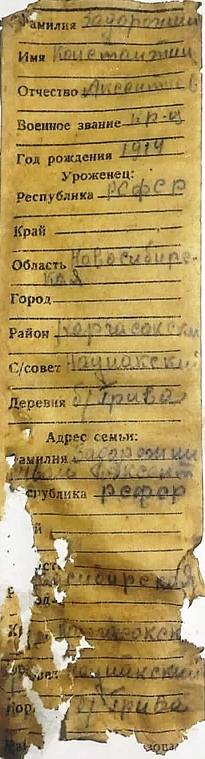 Фамилия Задорожный
Имя Константин
Отчество Аксентьев
Военное звание кр-ц
Год рождения 1914
Уроженец:
Республика РСФСР
Край
Область Новосибирс-
кая
Город
Район Каргасокский
С/совет
Деревня Грива
Адрес семьи:
амилия Задорожный
Аксент
спублика РСФСР
й
сибирская
од
Каргасокск
Грива